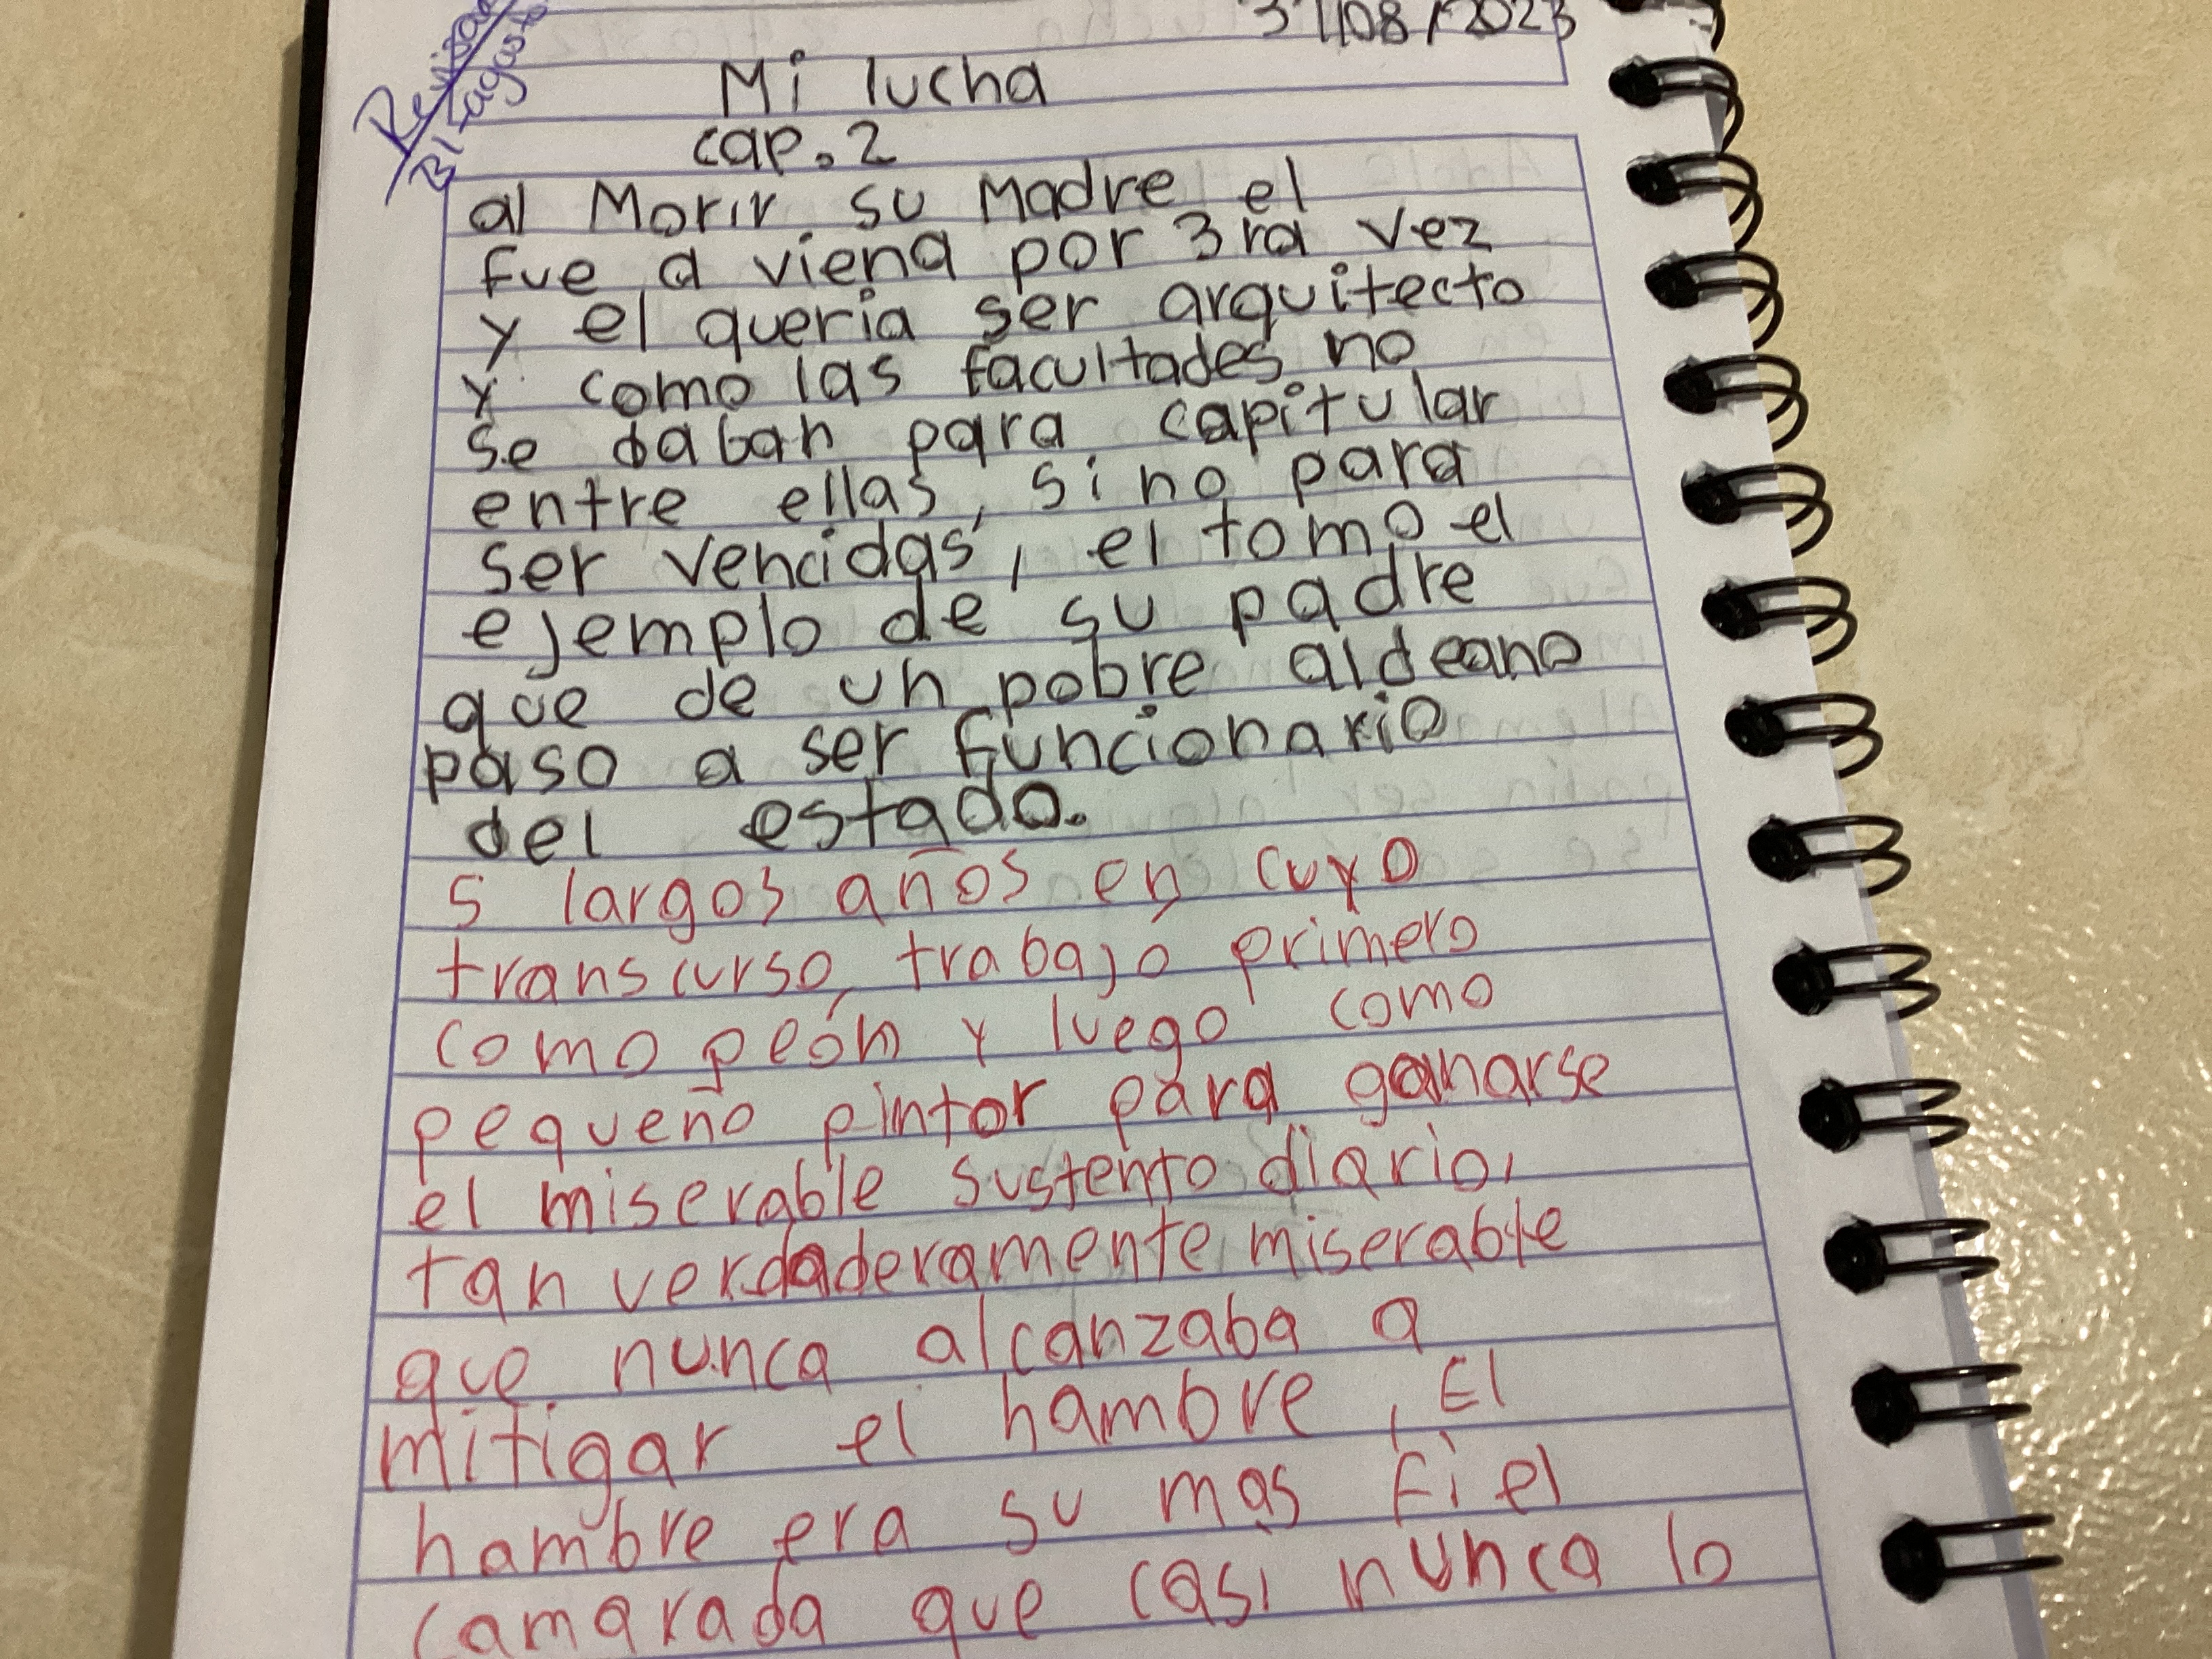 31/08/2023
Revisado
31-agosto
Mi lucha
cap. 2
al Morir su Madre el
fue a viena por 3ra vez
y el queria ser arquitecto
y como las facultades no
se daban para capitular
entre ellas, sino para
ser vencidas, el tomo el
ejemplo de su padre
que de un pobre aldeano
paso a ser funcionario
del estado.
5 largos años en cuyo
transcurso, trabajo primero
como peón y luego como
pequeño pintor para ganarse
el miserable sustento diario,
tan verdaderamente miserable
que nunca alcanzaba a
mitigar el hambre, El
hambre era su mas fiel
camarada que casi nunca lo